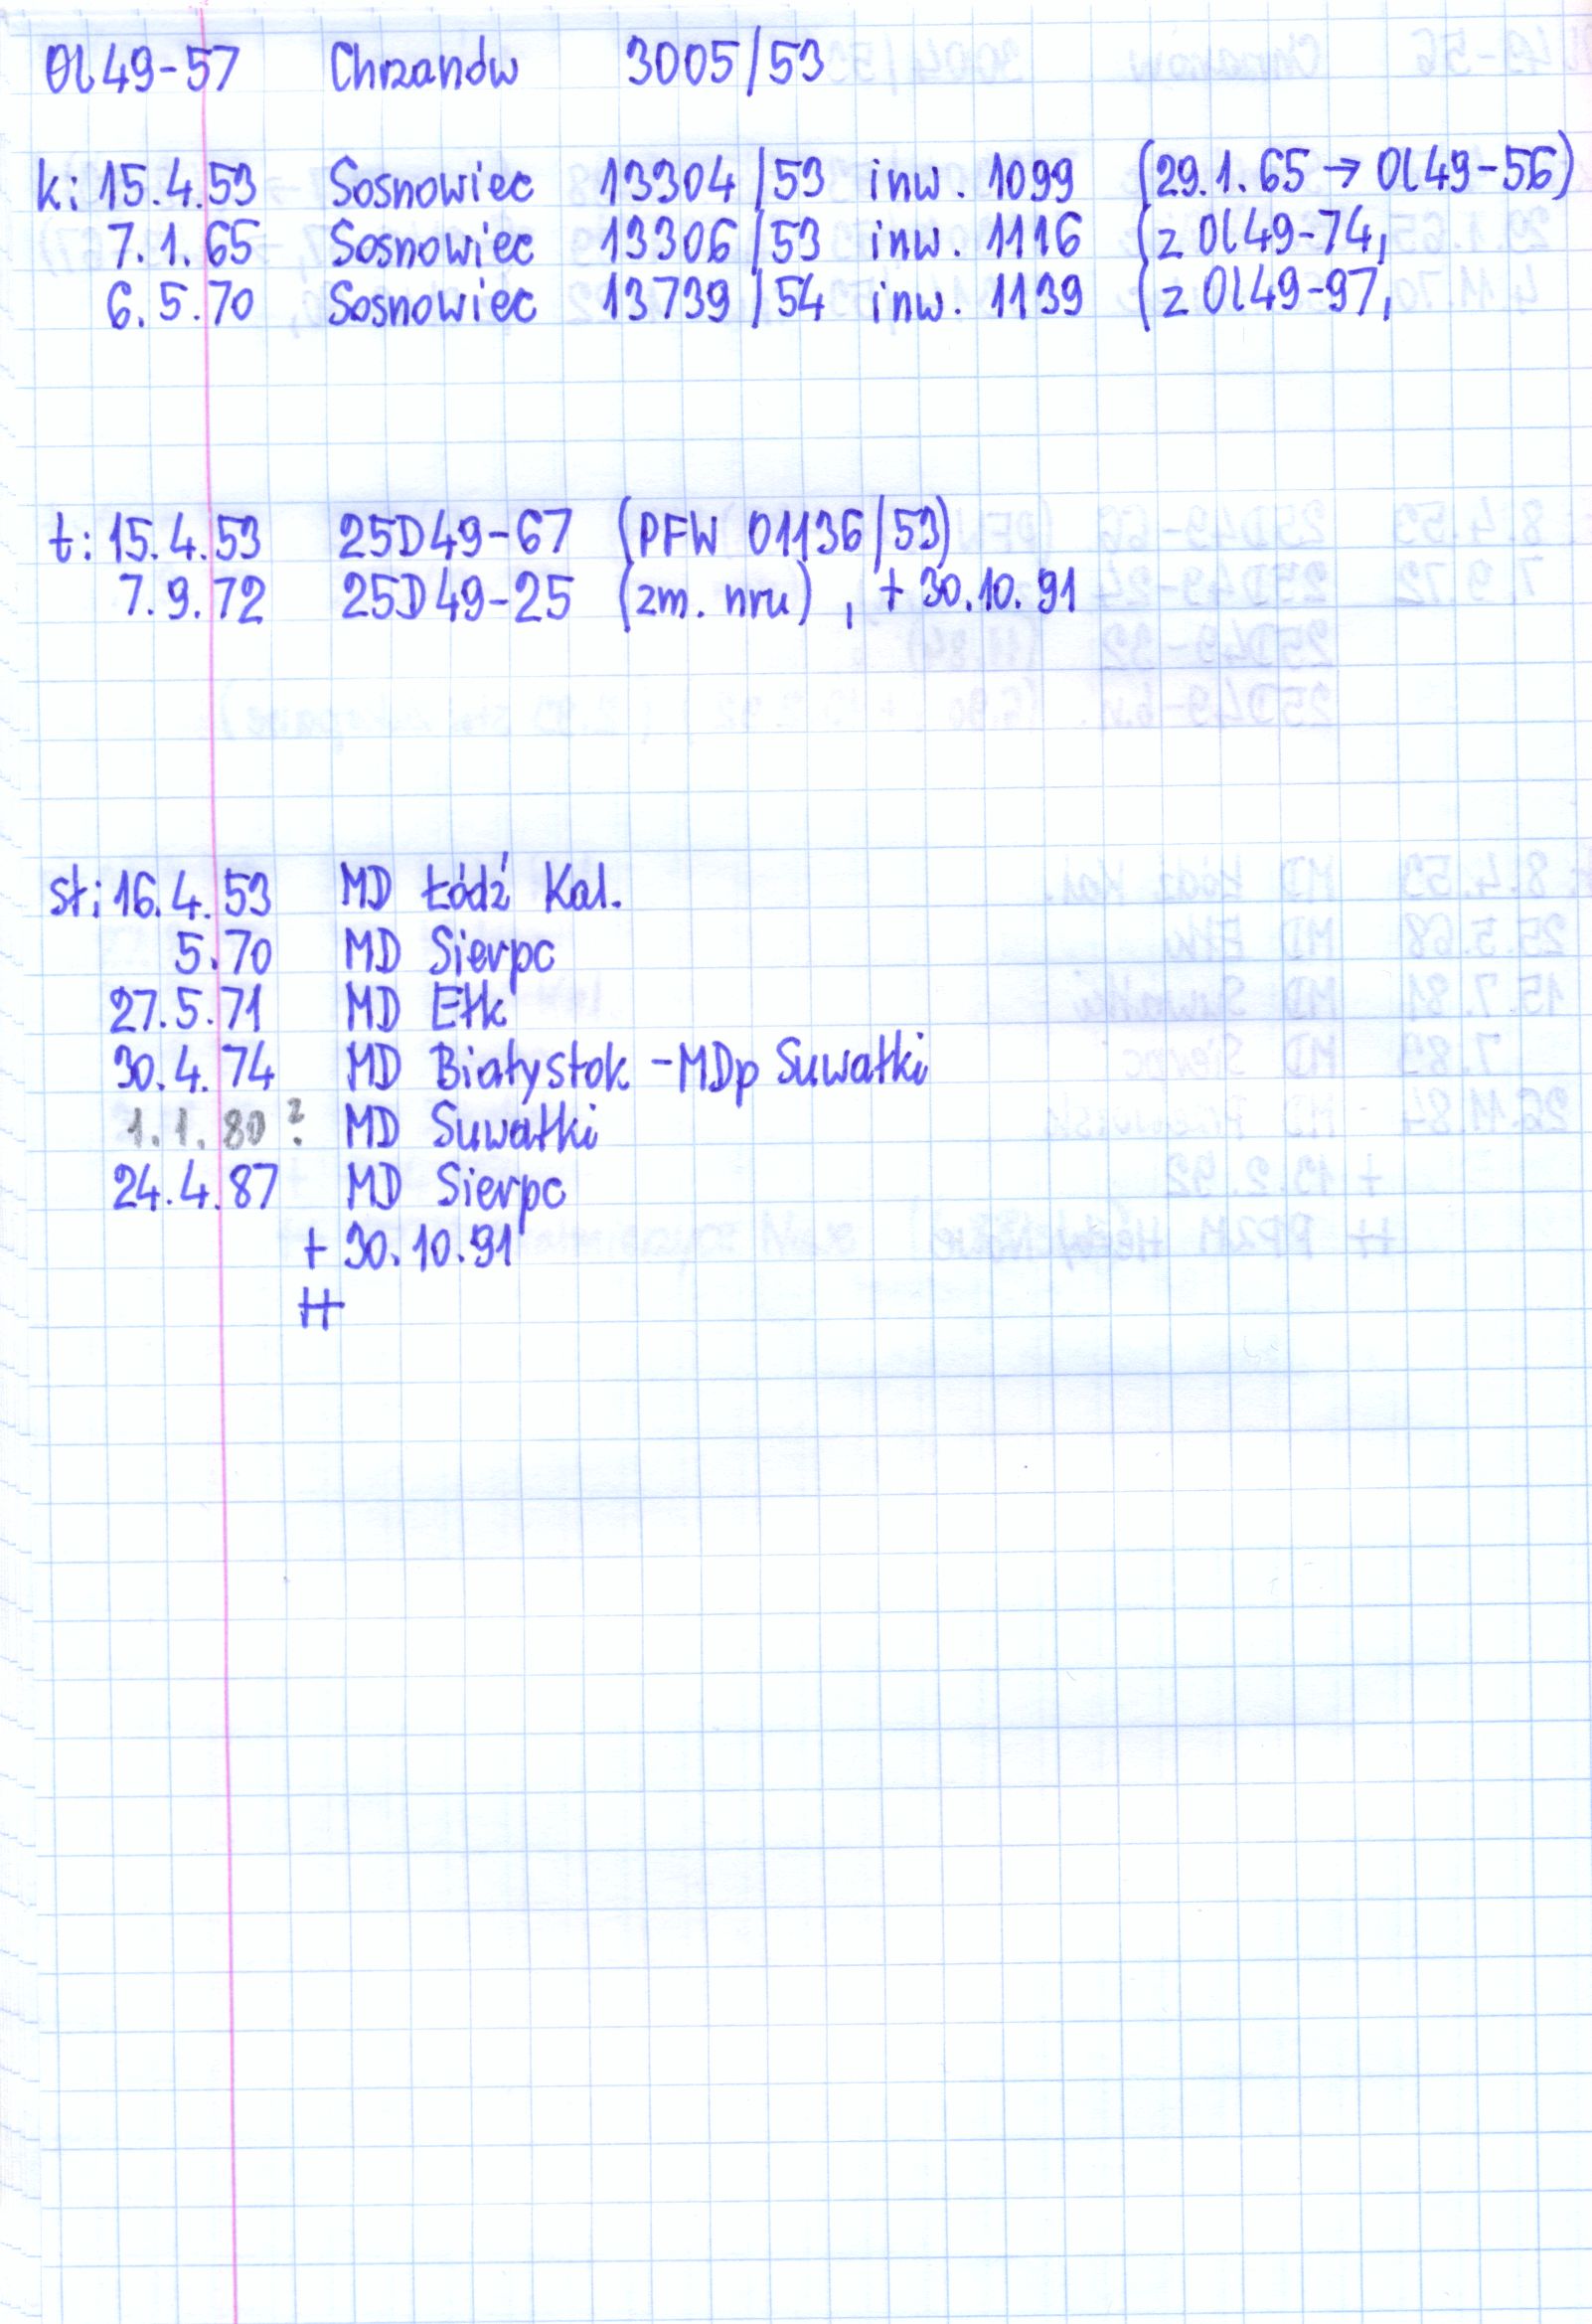 Ol49-57 Chrzanów 3005/53
k: 15.4.53 Sosnowiec 13304/53 inw. 1099 (29.1.65 → Ol49-56)
7.1.65 Sosnowiec 13306/53 inw. 1116 (z Ol49-74,
6.5.70 Sosnowiec 13739/54 inw. 1139 (z Ol49-97,
t: 15.4.53 25D49-67 (PFW 01136/53)
7.9.72 25D49-25 (zm. nru), + 30.10.91
st: 16.4.53 MD Łódź Kal.
5.70 MD Sierpc
27.5.71 MD Ełk
30.4.74 MD Białystok - MDp Suwałki
1.1.80? MD Suwałki
24.4.87 MD Sierpc
+ 30.10.91
++